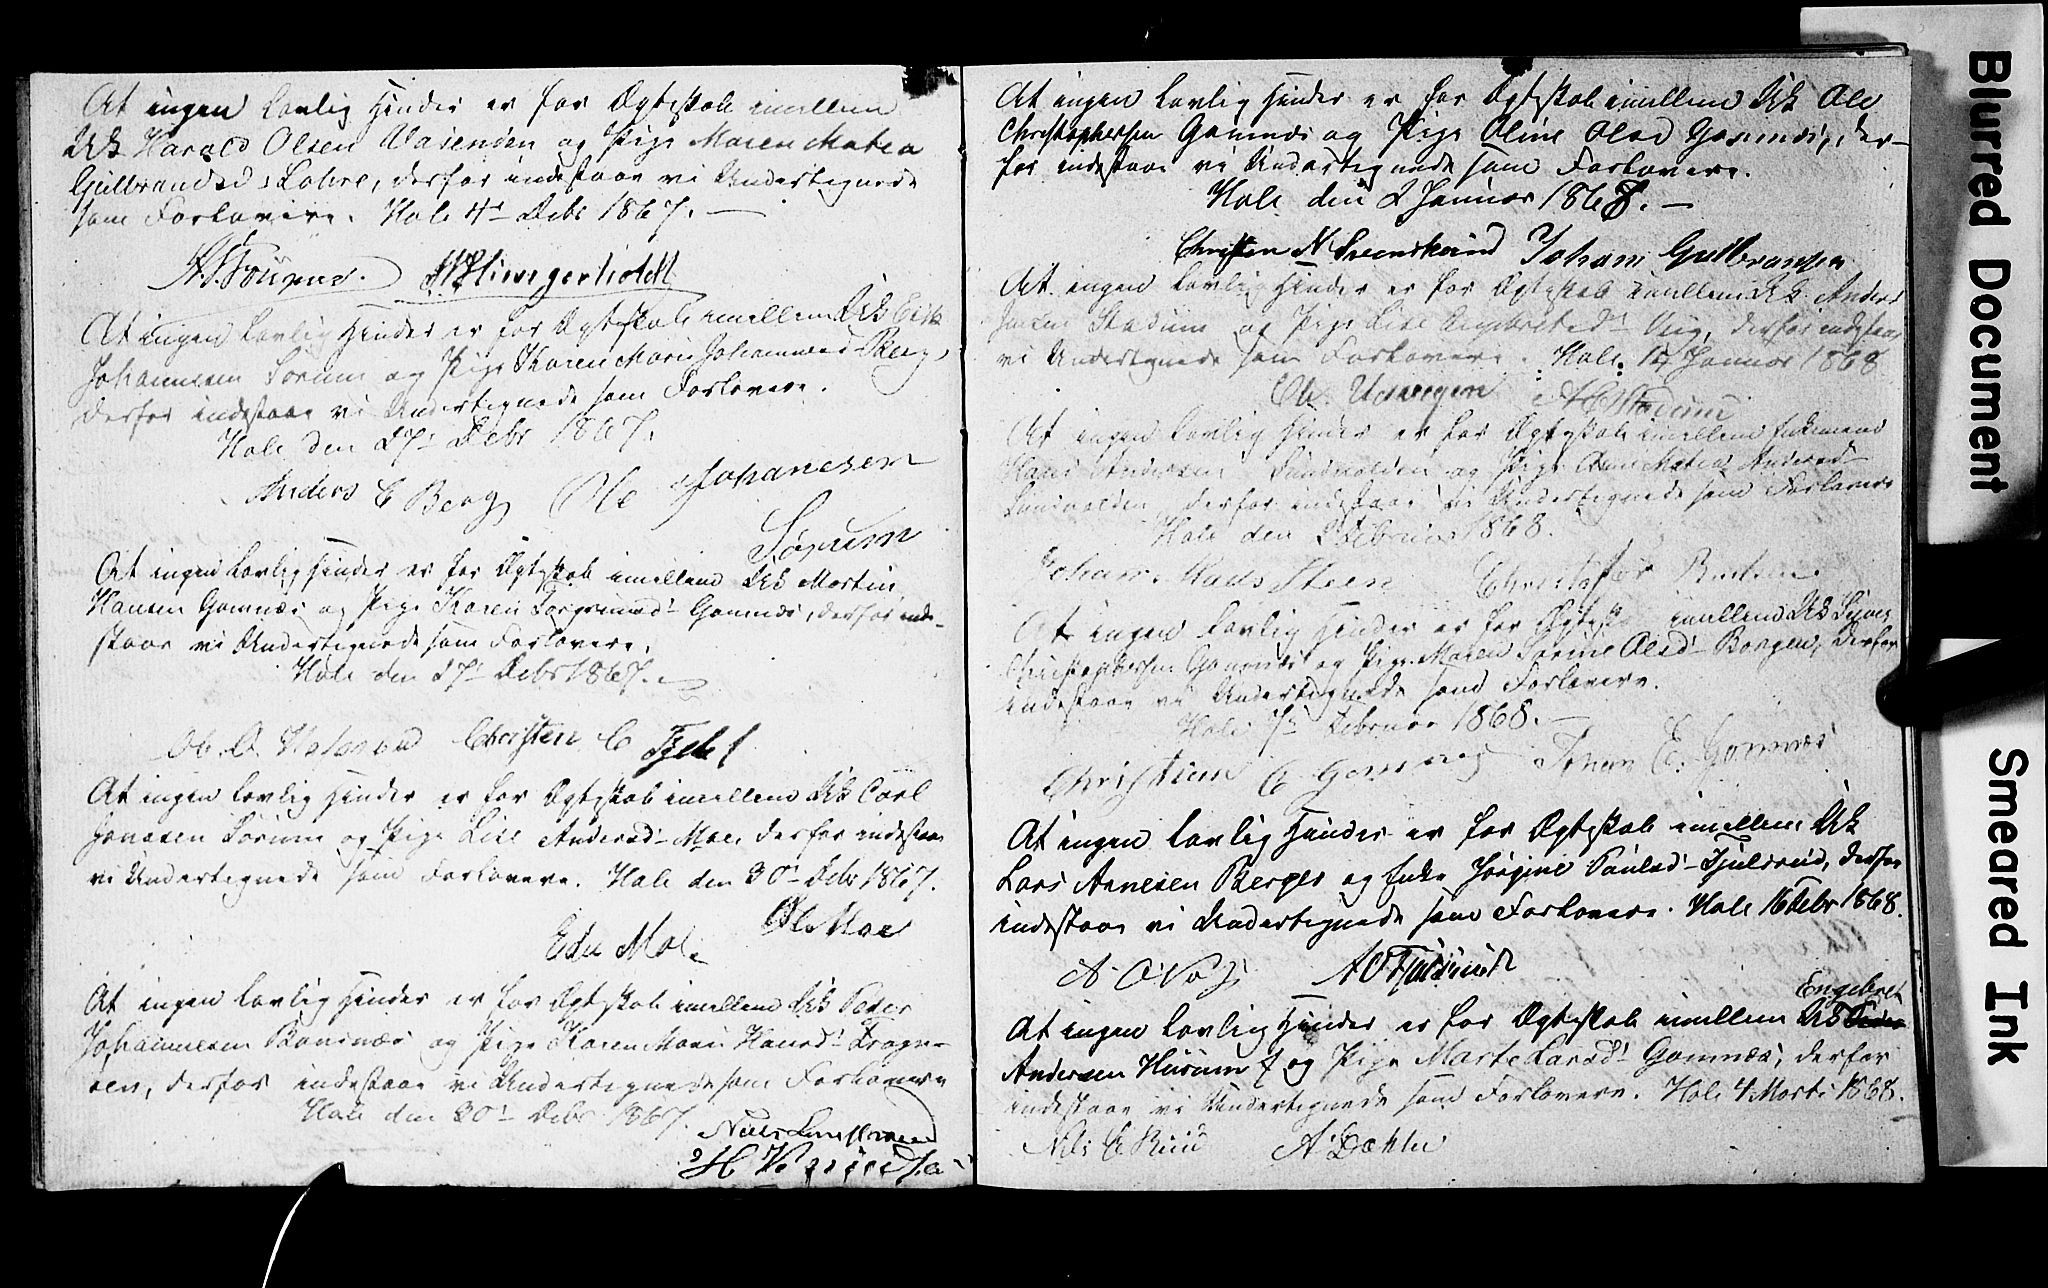 At ingen lovlig Hinder er for Ægteskab imellem
Uk Harald Olsen Vasenden og Pige Maren Mathea
Gulbrandsd: Lohre, derfor indestaar vi Undertegnede
som Forlovere. Hole 4de Debr 1867. —
At ingen lovlig Hinder er for Ægteskab imellem Uk Erik
Johannesen Sørum og Pige Karen Marie Johannesd Berg,
derfor indestaar vi Undertegnede som Forlovere.
Hole den 27' Debr 1867.
Anders C Berg Ole Johanesen
Sørum
At ingen lovlig Hinder er for Ægteskab imellem Uk Martin
Hansen Gomnæs og Pige Karen Gomnæs, derfor inde-
staar vi Undertegnede som Forlovere.
Hole den 27' Debr 1867.
Ole O Christen C
At ingen lovlig Hinder er for Ægteskab imellem Uk Carl
Hansen Sørum og Pige Lise Andersd' Moe, derfor indestaar
vi Undertegnede som Forlovere. Hole den 30' Debr 1867.
Ole Moe
Edv Moe
At ingen lovlig Hinder er for Ægteskab imellem Uk Peder
Johannesen Bønsnæs og Pige Karen Marie Hansd' Fragn-
oen, derfor indestaar vi Undertegnede som Forlovere
Hole den 30' Debr 1867.
At ingen lovlig Hinder er for Ægteskab imellem Uk Ole
Christophersen Gomnæs og Pige Oline Olsd Gomnæs, der-
for indestaar vi Undertegnede som Forlovere.
Hole den 2 Januar 1868. —
Christen N Svenskerud Johan Gulbransen
At ingen lovlig Hinder er for Ægteskab imellem Uk Anders
Stadum og Pige Lise Engebretsd' Viig, derfor indestaar
vi Undertegnede som Forlovere. Hole Januar 1868
Ole A C Stadum
At ingen lovlig Hinder er for Ægteskab imellem Enkemand
Hans Andersen Sundvolden og Pige Anne Mathea Andersd
Sundvolden, derfor indestaar vi Undertegnede som Forlovere
Hole den Februar 1868.
Johan Mads Steen Christofer
At ingen lovlig Hinder er for Ægtesk imellem Uk
Christophersen Gomnæs og Pige Maren Sørine Olsd' Borgen, derfor
indestaar vi Undertegnede som Forlovere.
Hole 7' Februar 1868. —
Christian C Gomnæs Johan E. Gomnæs
At ingen lovlig Hinder er for Ægteskab imellem Uk
Lars Arnesen Berger og Enke Jørgine Paulsd' Fjulsrud, derfor
indestaar vi Undertegnede som Forlovere. Hole 16 Febr 1868.
A O Fjulsrud
Engebret
At ingen lovlig Hinder er for Ægteskab imellem Uk
Andersen Hurum og Pige Marte Larsd' Gomnæs, derfor
indestaar vi Undertegnede som Forlovere. Hole 4 Marts 1868.
Nils E Ruud A Dæhlie
Blurred Document
Smeared Ink